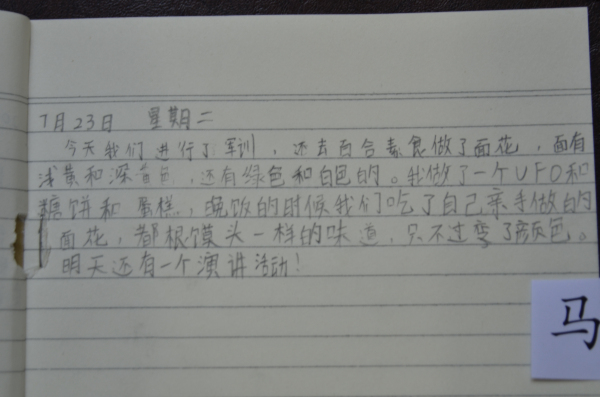 7月23日 星期二
今天我们进行了军训，还去百合素食做了面花，面有
浅黄和深黄色，还有绿色和白色的。我做了一个UFO和
糖饼和蛋糕，晚饭的时候我们吃了自己亲手做的
面花，都跟馍头一样的味道，只不过变了颜色。
明天还有一个演讲活动！
马